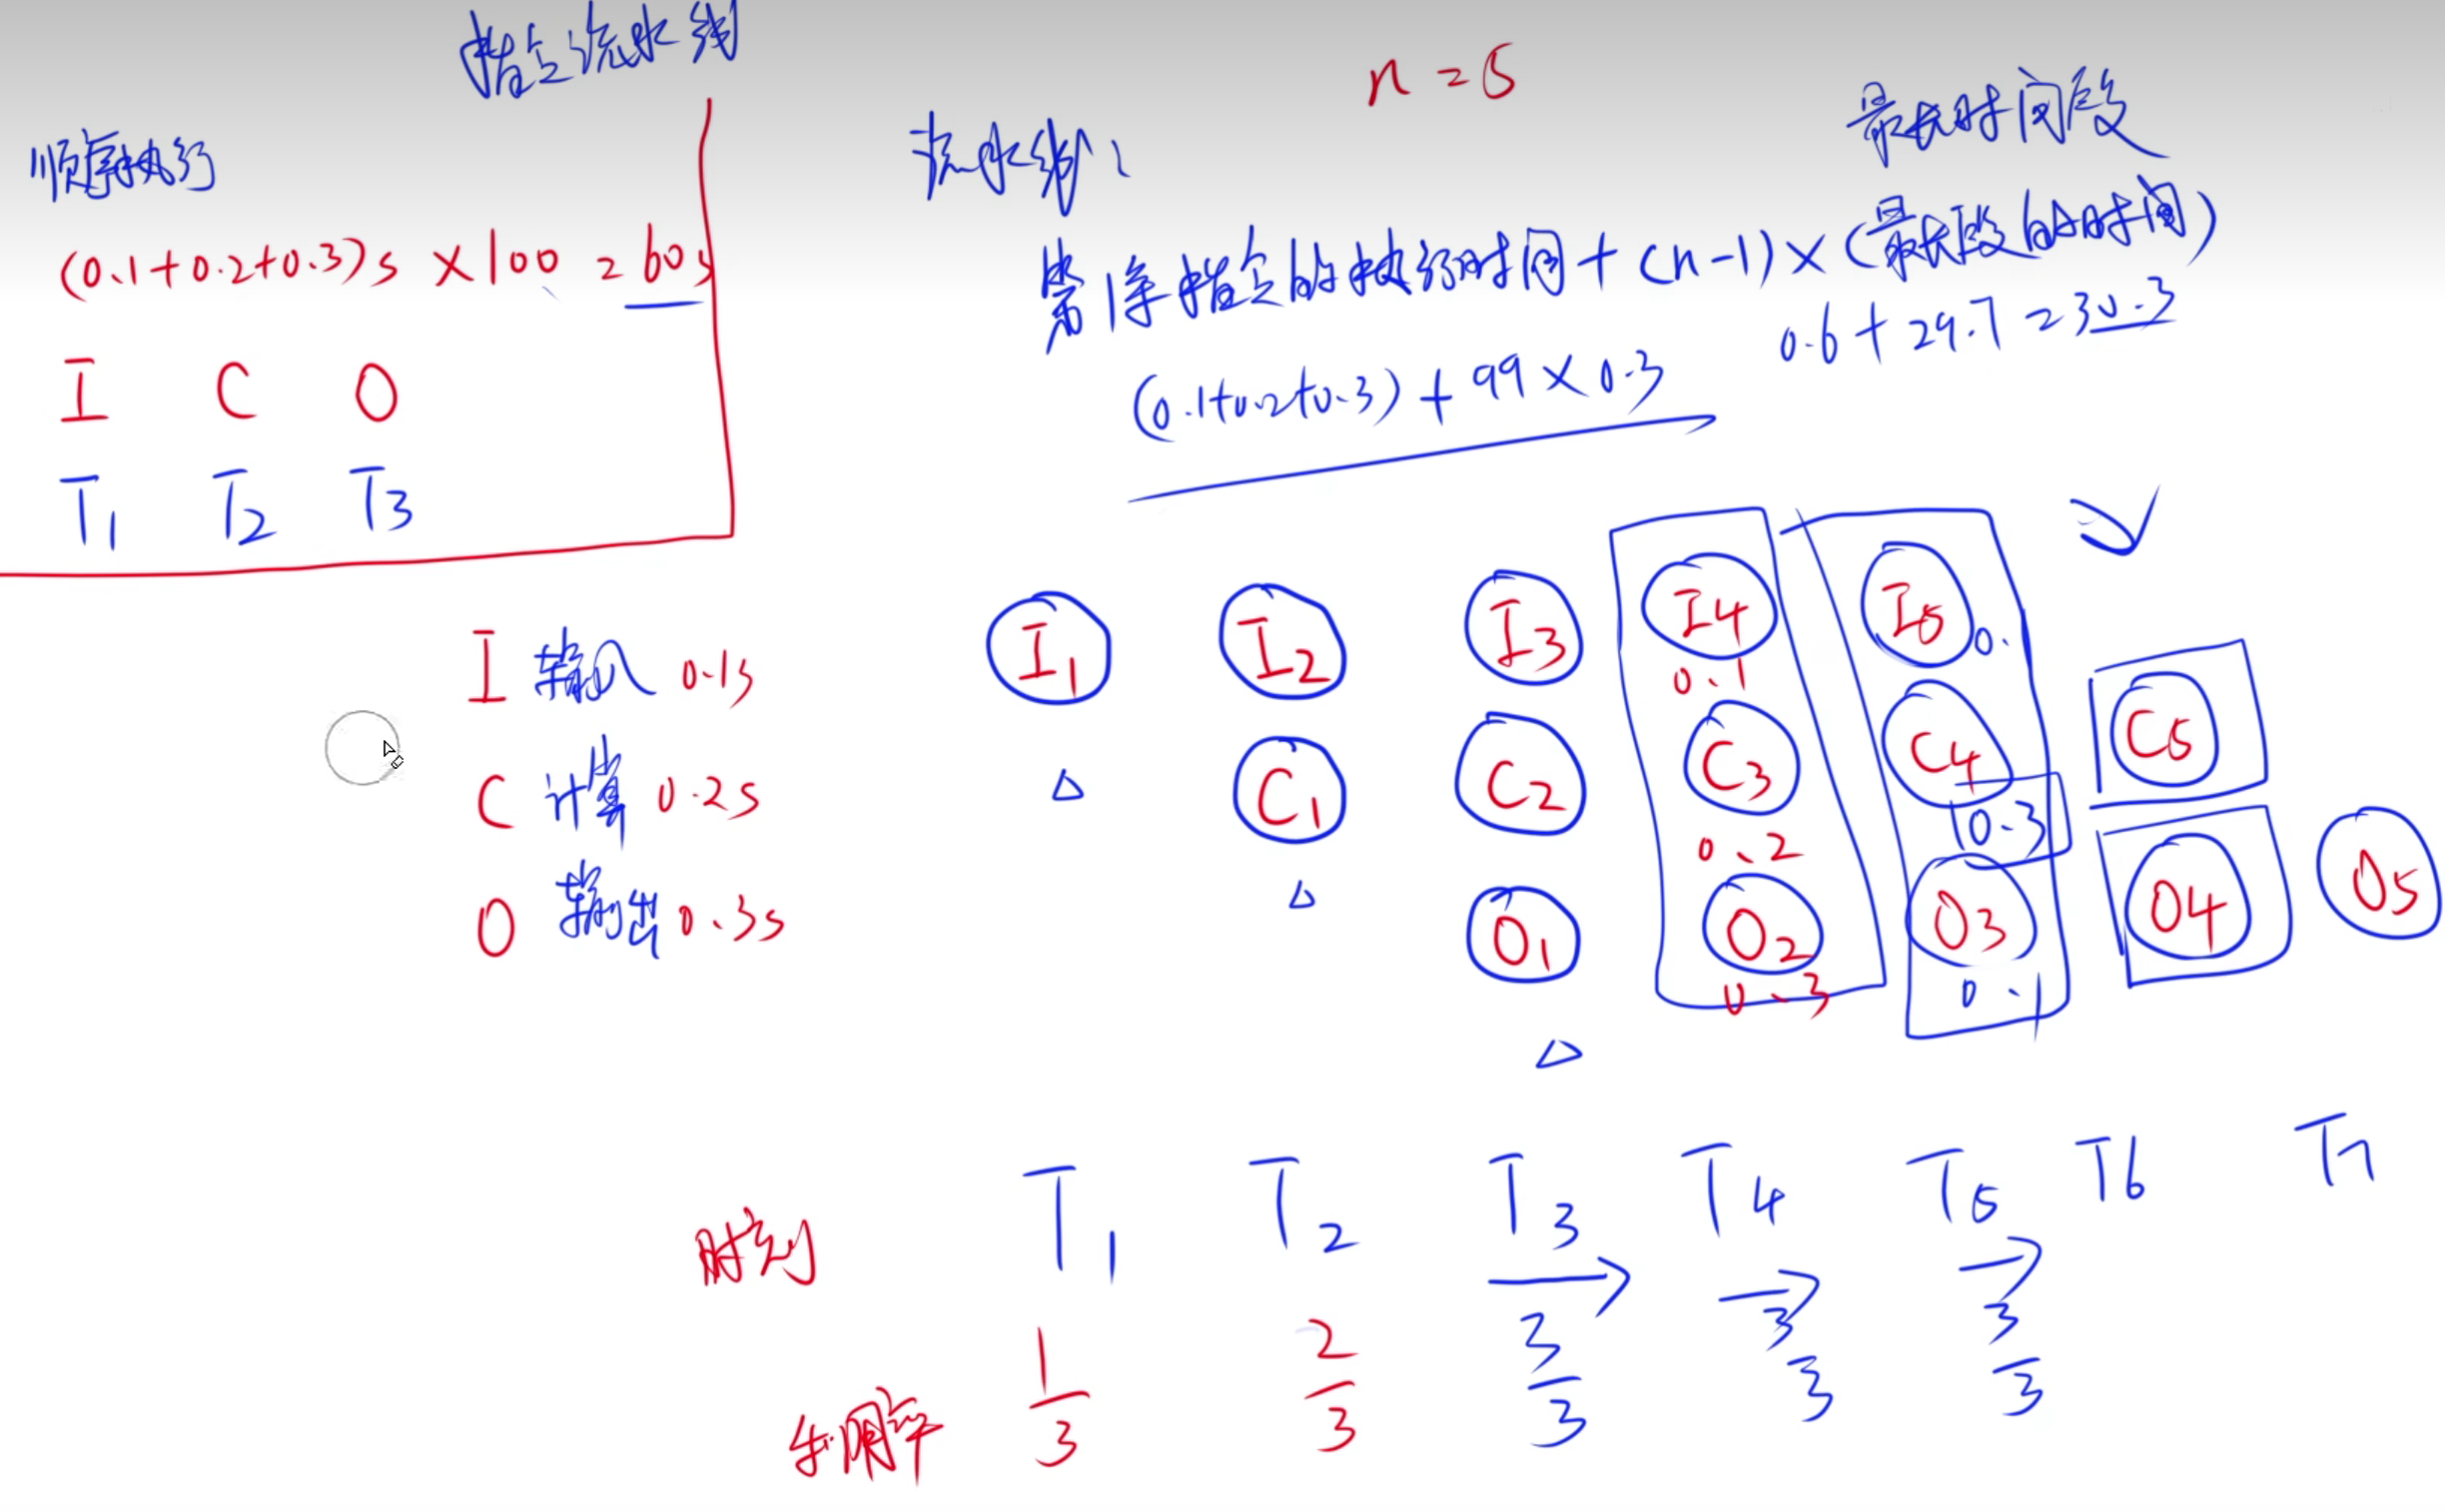 指令流水线
n=5
顺序执行
(0.1+0.2+0.3)s ×100 = 60s
I C O
T1 T2 T3
流水线、
最长时间段
第1条指令的执行时间+(n-1)×(最长段的时间)
(0.1+0.2+0.3)+99×0.3
0.6+29.7=30.3
I 输入 0.1s
C 计算 0.2s
O 输出 0.3s
I1 I2 I3 I4 I5
0.1 0.
C1 C2 C3 C4 C5
0.2 0.3
O1 O2 O3 O4 O5
0.3 0.1
时刻 T1 T2 T3 T4 T5 T6 T7
1/3 2/3 3/3 3/3 3/3